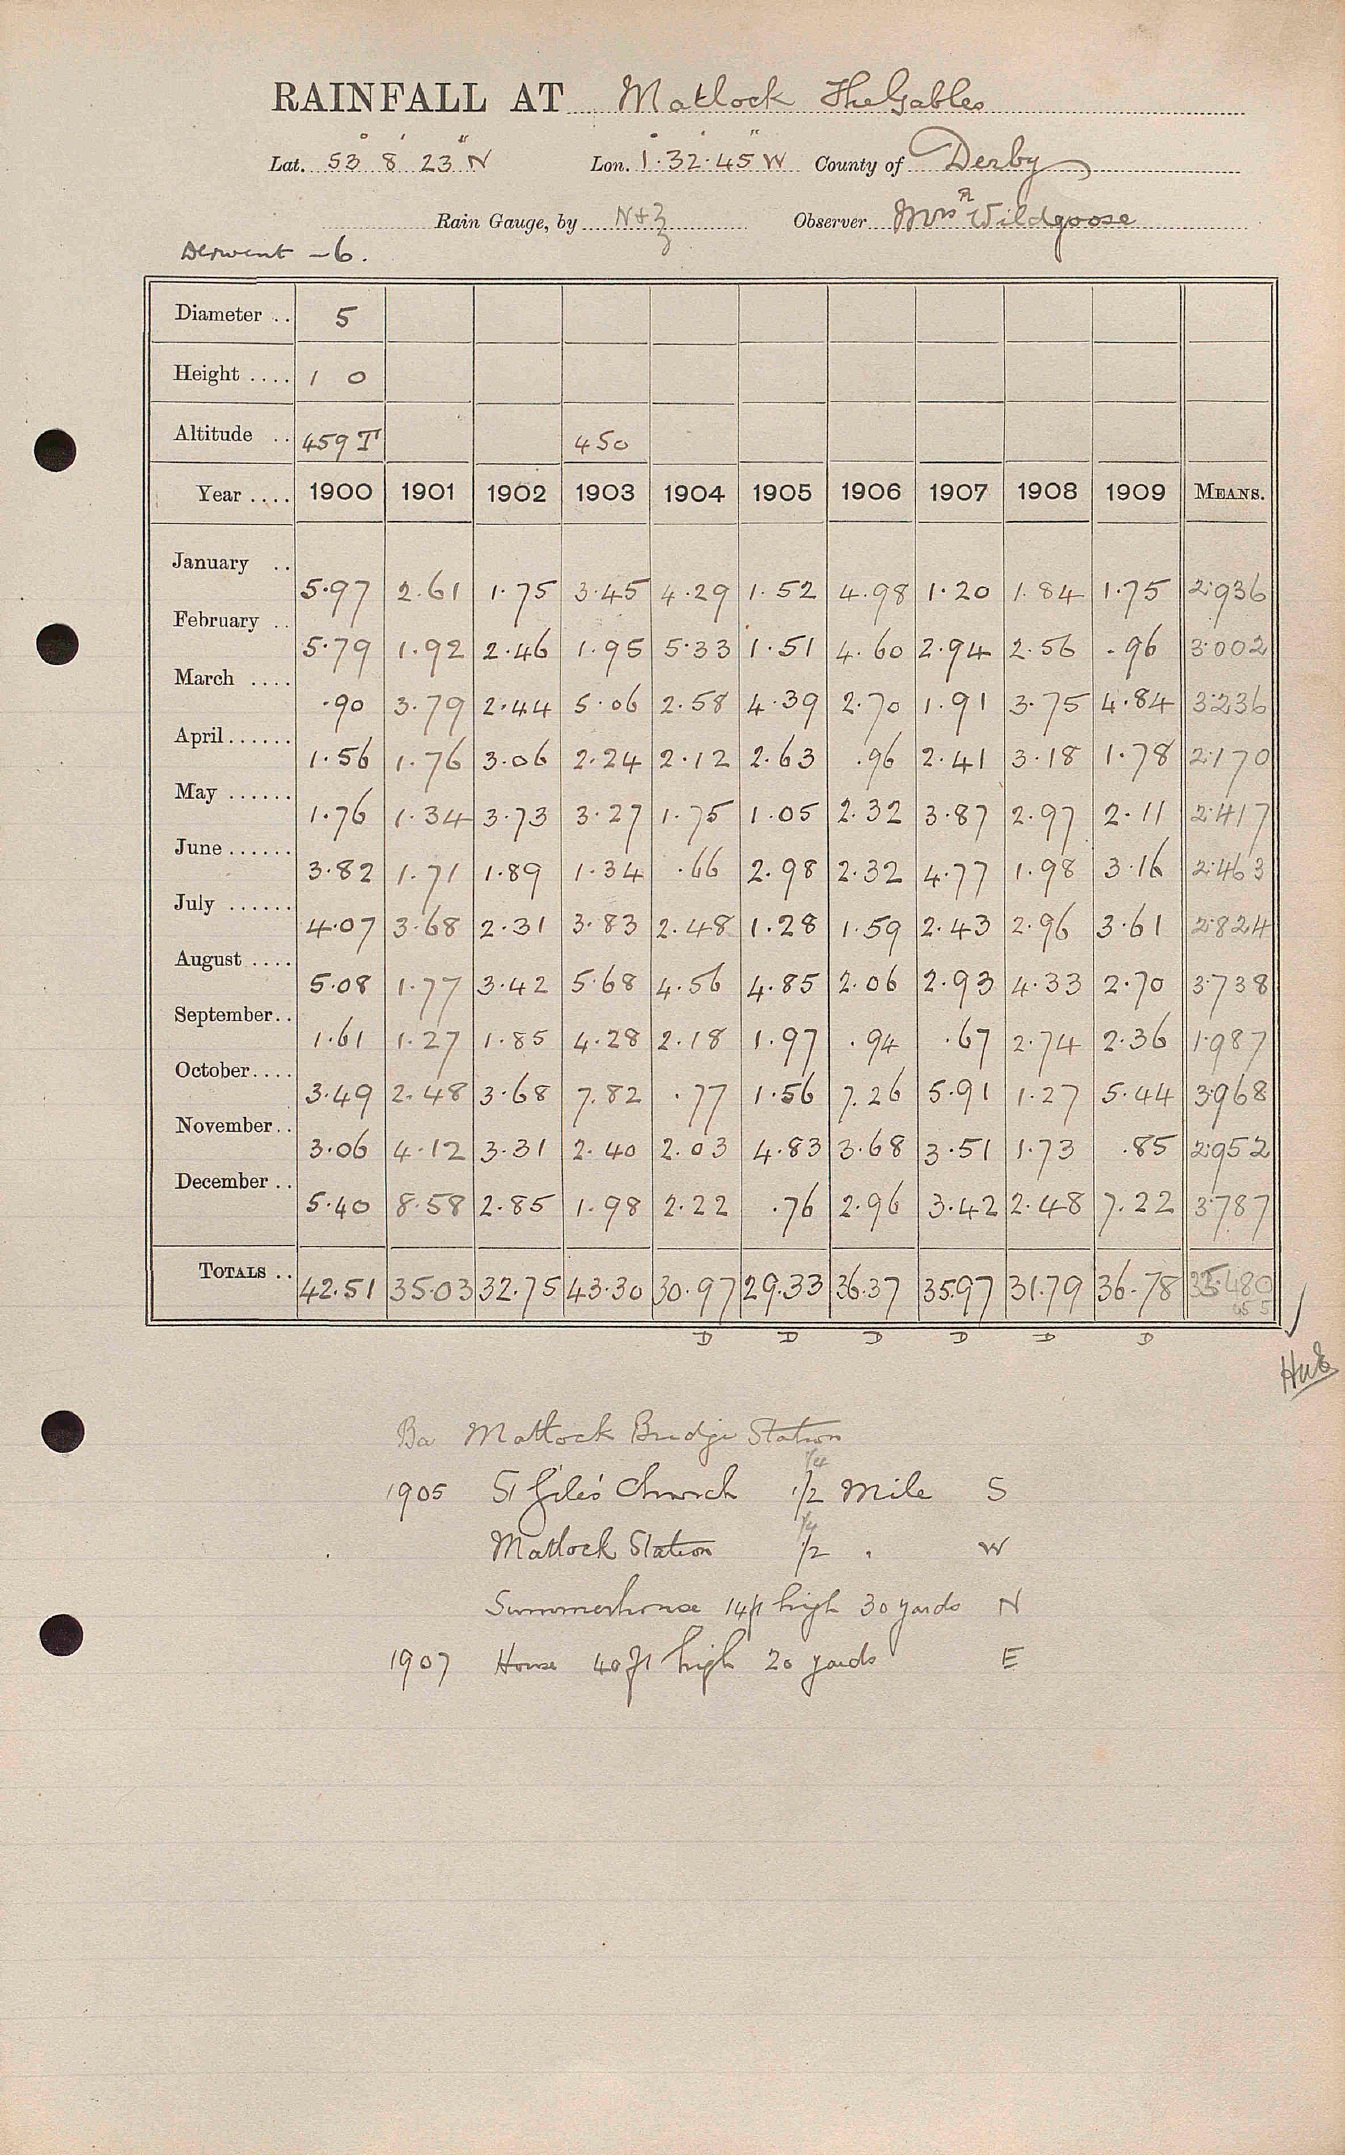 RAINFALL AT Matlock The Gables
Lat. 53° 8' 23" N Lon. 1° 32' 45" W County of Derby
Rain Gauge, by N+Z Observer Mrs R Wildgoose
Derwent - 6.
Diameter .. 5
Height .... 1 0
Altitude .. 459 T 450
Year .... 1900 1901 1902 1903 1904 1905 1906 1907 1908 1909 MEANS.
January .. 5.97 2.61 1.75 3.45 4.29 1.52 4.98 1.20 1.84 1.75 2.936
February .. 5.79 1.92 2.46 1.95 5.33 1.51 4.60 2.94 2.56 .96 3.002
March .... .90 3.79 2.44 5.06 2.58 4.39 2.70 1.91 3.75 4.84 3.236
April ...... 1.56 1.76 3.06 2.24 2.12 2.63 .96 2.41 3.18 1.78 2.170
May ...... 1.76 1.34 3.73 3.27 1.75 1.05 2.32 3.87 2.97 2.11 2.417
June ...... 3.82 1.71 1.89 1.34 .66 2.98 2.32 4.77 1.98 3.16 2.463
July ...... 4.07 3.68 2.31 3.83 2.48 1.28 1.59 2.43 2.96 3.61 2.824
August .... 5.08 1.77 3.42 5.68 4.56 4.85 2.06 2.93 4.33 2.70 3.738
September.. 1.61 1.27 1.85 4.28 2.18 1.97 .94 .67 2.74 2.36 1.987
October.... 3.49 2.48 3.68 7.82 .77 1.56 7.26 5.91 1.27 5.44 3.968
November.. 3.06 4.12 3.31 2.40 2.03 4.83 3.68 3.51 1.73 .85 2.952
December .. 5.40 8.58 2.85 1.98 2.22 .76 2.96 3.42 2.48 7.22 3.787
TOTALS .. 42.51 35.03 32.75 43.30 30.97 29.33 36.37 35.97 31.79 36.78 35.480
D D D D D D
Ba Matlock Bridge Station
1/4
1905 St Giles' Church 1/2 Mile S
1/4
Matlock Station 1/2 " W
Summerhouse 14ft high 30 yards N
1907 House 40 ft high 20 yards E